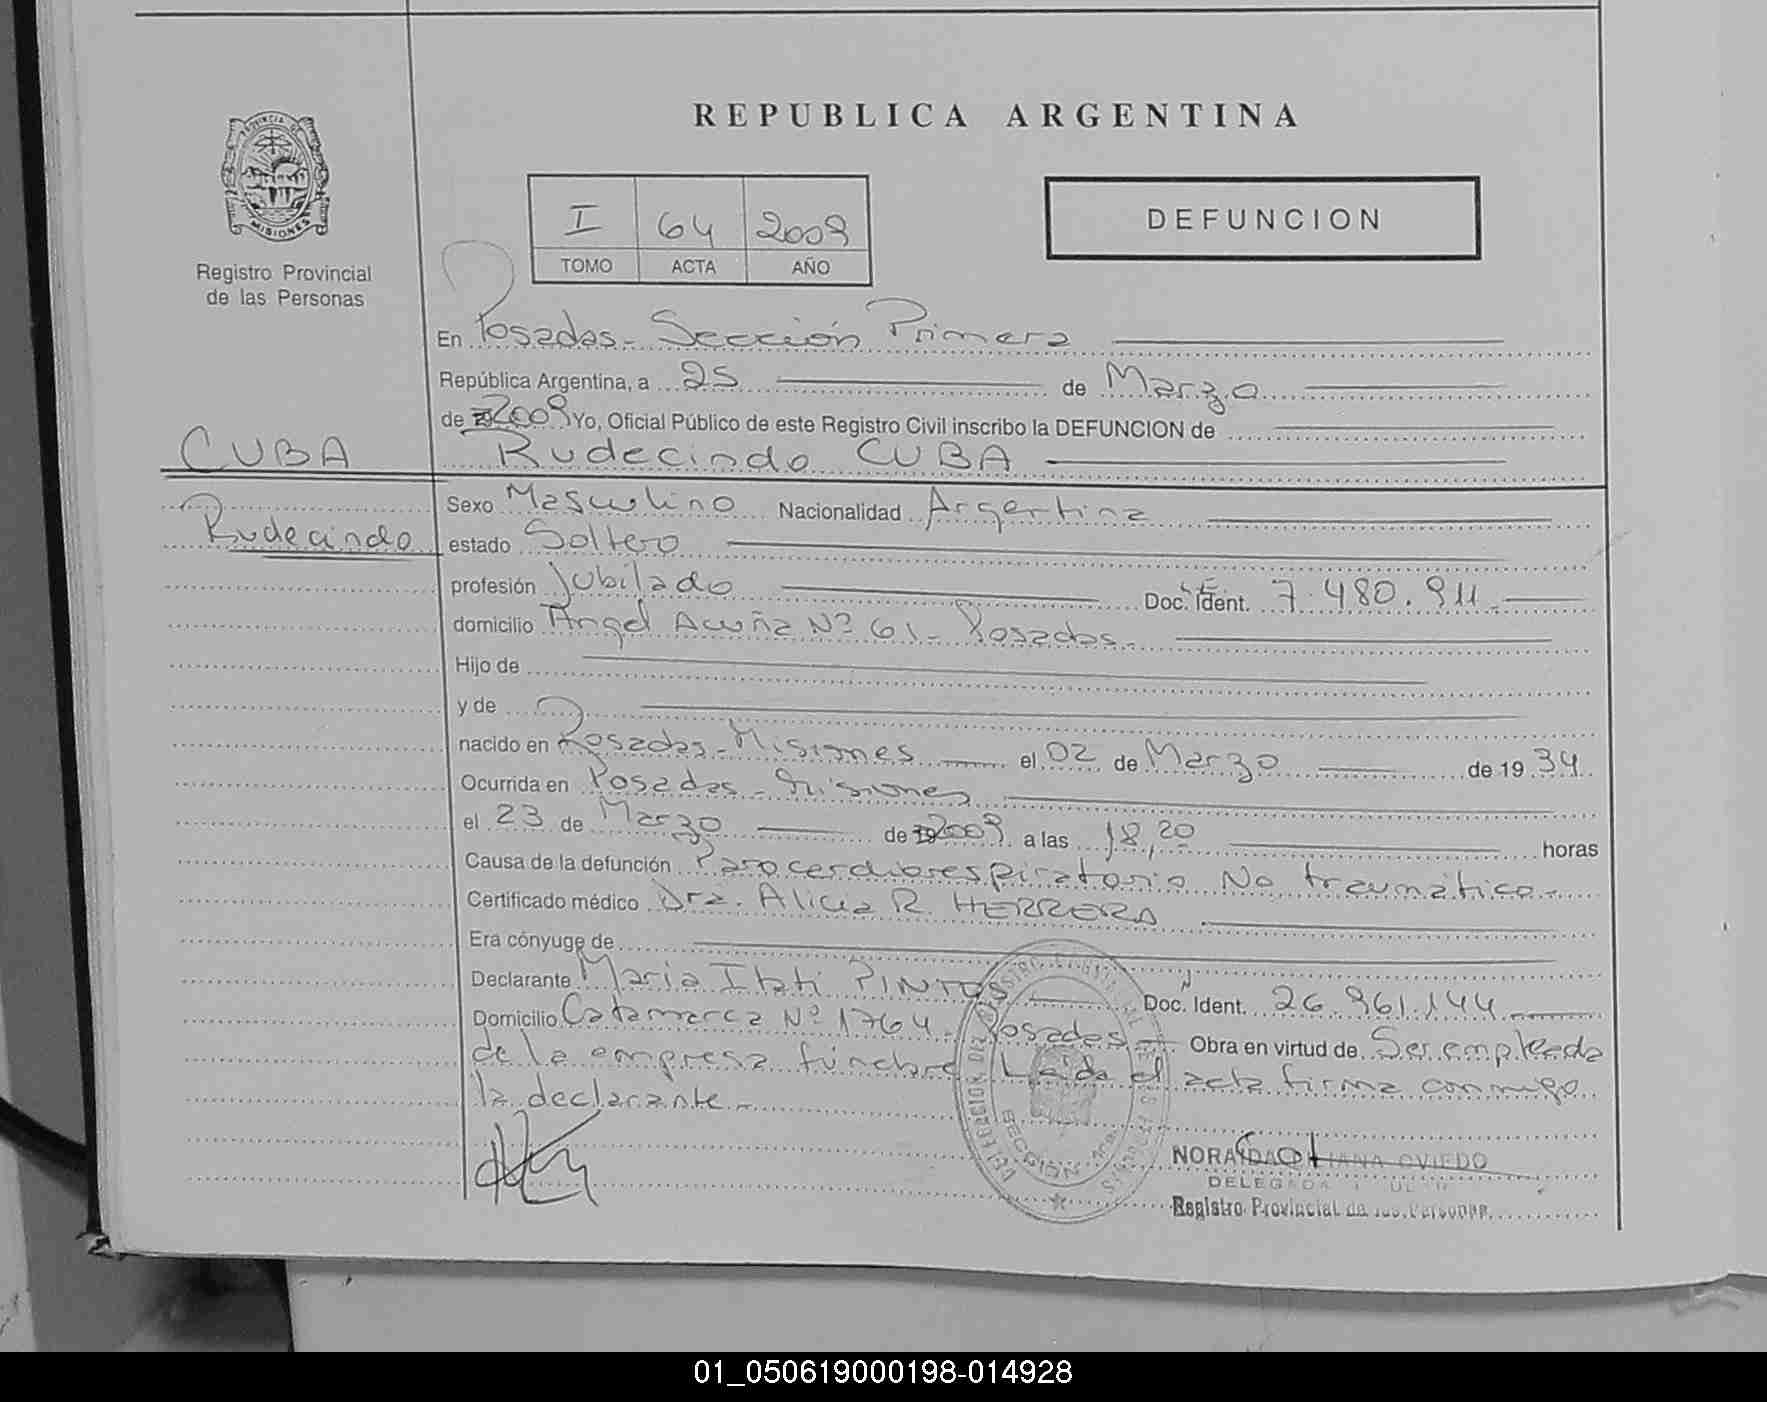 REPUBLICA ARGENTINA
PROVINCIA DE
MISIONES
Registro Provincial
de las Personas
I 64 2009
TOMO ACTA AÑO
DEFUNCION
En Posadas - Sección Primera
República Argentina, a 25 de Marzo
de 2009 Yo, Oficial Público de este Registro Civil inscribo la DEFUNCION de
CUBA Rudecindo CUBA
Sexo Masculino Nacionalidad Argentina
Rudecindo estado Soltero
profesión Jubilado Doc. Ident. LE 7.480.911.-
domicilio Angel Acuña Nº 61 - Posadas.-
Hijo de
y de
nacido en Posadas - Misiones el 02 de Marzo de 1934
Ocurrida en Posadas - Misiones
el 23 de Marzo de 2009 a las 18,20 horas
Causa de la defunción Paro cardiorespiratorio No traumático.-
Certificado médico Dra. Alicia R. HERRERA
Era cónyuge de
Declarante Maria Itati PINTOS Doc. Ident. 26.961.144
Domicilio Catamarca Nº 1764 - Posadas - Obra en virtud de Ser empleada
de la empresa fúnebre Leída el acta firma conmigo
la declarante.-
SECCION
NORA OVIEDO
DELEGADA
Registro Provincial de las Personas
01_050619000198-014928